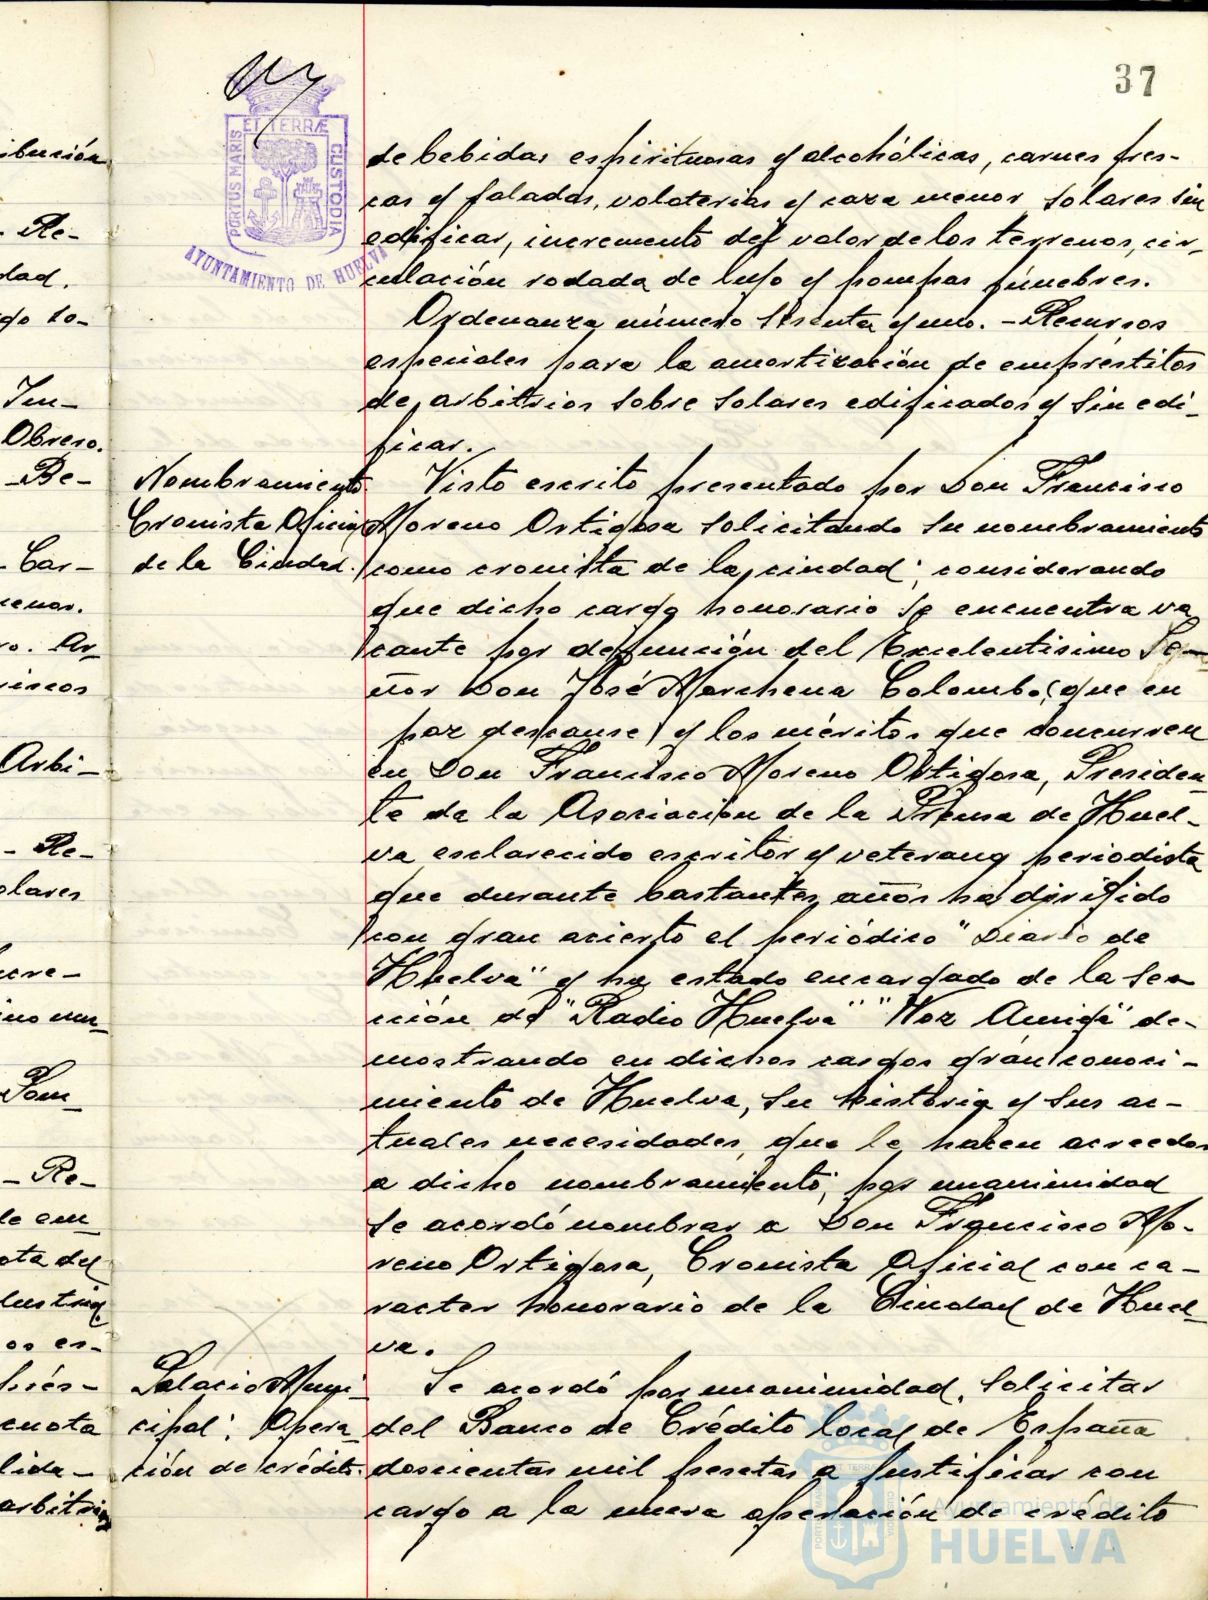 37
PORTUS MARIS ET TERRÆ CUSTODIA
AYUNTAMIENTO DE HUELVA
ibución
- Re-
dad.
go so-
Im-
Obrero.
- Be-
- Car-
menor.
ro. Ar-
riscos
Arbi-
- Re-
olares
cre-
Pom-
- Re-
de em-
ota del
os es-
prés-
cuota
lida-
arbitrios
de bebidas espirituosas y alcohólicas, carnes fres-
cas y saladas, volaterías y caza menor, solares sin
edificar, incremento del valor de los terrenos, cir-
culación rodada de lujo y pompas fúnebres.
Ordenanza número sesenta y uno. - Recursos
especiales para la amortización de empréstitos
de arbitrios sobre solares edificados y sin edi-
ficar.
Nombramiento
Cronista Oficial
de la Ciudad.
Visto escrito presentado por Don Francisco
Moreno Ortigosa solicitando su nombramiento
como cronista de la ciudad; considerando
que dicho cargo honorario se encuentra va
cante por defunción del Excelentísimo Se-
ñor Don José Marchena Colombo (que en
paz descanse) y los méritos que concurren
en Don Francisco Moreno Ortigosa, Presiden-
te de la Asociación de la Prensa de Huel-
va esclarecido escritor y veterano periodista
que durante bastantes años ha dirigido
con gran acierto el periódico "Diario de
Huelva" y ha estado encargado de la sec
ción de "Radio Huelva" "Voz Amiga" de-
mostrando en dichos cargos gran conoci-
miento de Huelva, su historia y sus ac-
tuales necesidades, que le hacen acreedor
a dicho nombramiento; por unanimidad
se acordó nombrar a Don Francisco Mo-
reno Ortigosa, Cronista Oficial con ca-
racter honorario de la Ciudad de Huel-
va.
Palacio Muni-
cipal: Opera-
ción de crédito.
Se acordó por unanimidad, solicitar
del Banco de Crédito local de España
doscientas mil pesetas a justificar con
cargo a la nueva operación de crédito
Ayuntamiento de
HUELVA